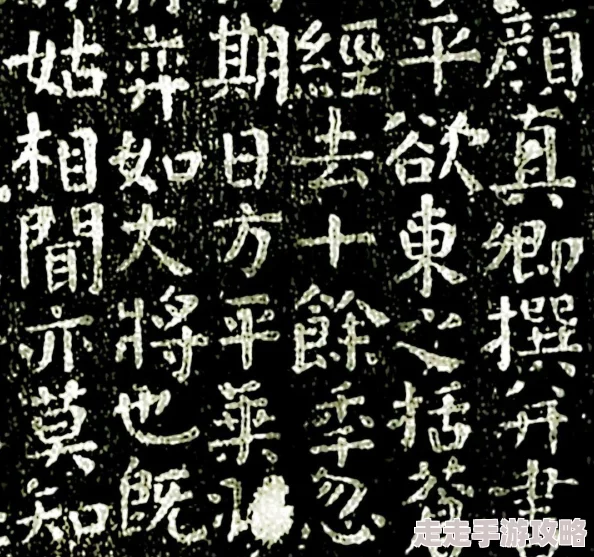 顏真卿撰并書
平欲東之括蒼
經去十餘秊忽
期日方平乘
弈如大將也既
姑相聞亦莫知
走走手游攻略